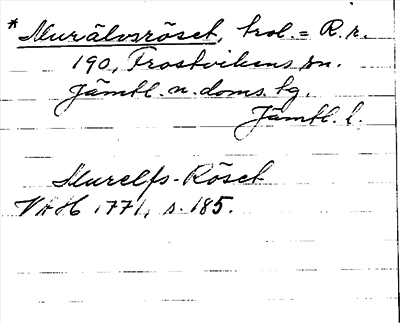 * Murälvsröset, trol. = R.r.
190, Frostvikens sn.
Jämtl. n. doms. tg.
Jämtl. l.
Murelfs-Röset
VAH 1771, s. 185.